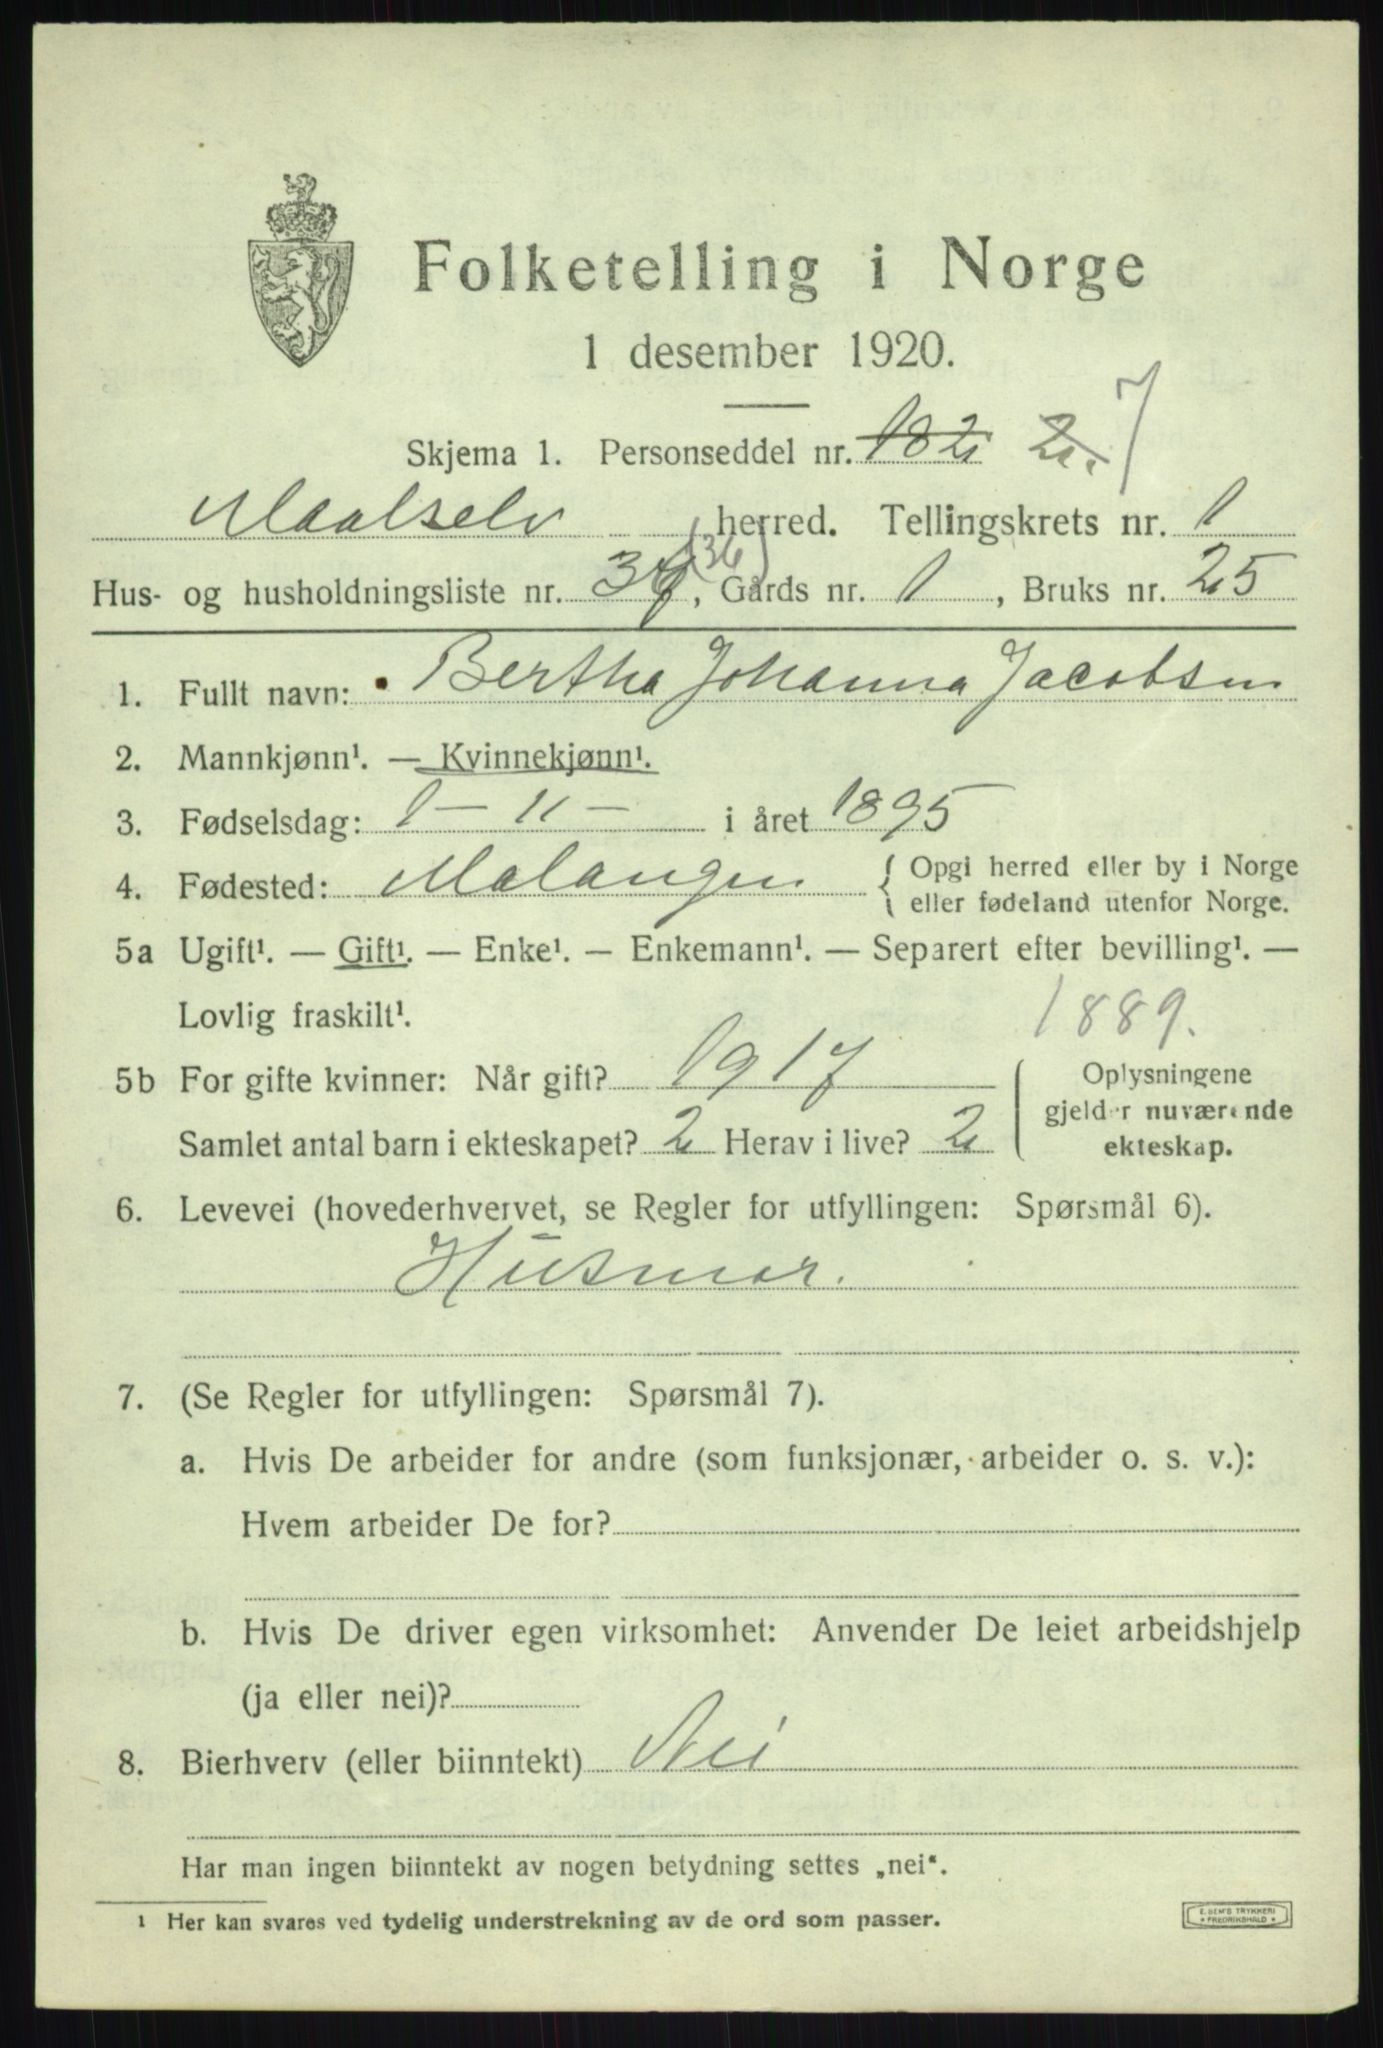 Folketelling i Norge
1 desember 1920.
Skjema 1. Personseddel nr. 182 2. 7
Maalselv herred. Tellingskrets nr. 1
Hus- og husholdningsliste nr. 37 (36), Gårds nr. 1, Bruks nr. 25
1. Fullt navn: Bertha Johanna Jacobsen
2. Mannkjønn¹. — Kvinnekjønn¹.
3. Fødselsdag: 1 – 11 – i året 1895
4. Fødested: Malangen { Opgi herred eller by i Norge
eller fødeland utenfor Norge.
5a Ugift¹. — Gift¹. — Enke¹. — Enkemann¹. — Separert efter bevilling¹. —
Lovlig fraskilt¹.
1889.
5b For gifte kvinner: Når gift? 1917
Samlet antal barn i ekteskapet? 2 Herav i live? 2
Oplysningene
gjelder nuværende
ekteskap.
6. Levevei (hovederhvervet, se Regler for utfyllingen: Spørsmål 6).
Husmor.
7. (Se Regler for utfyllingen: Spørsmål 7).
a. Hvis De arbeider for andre (som funksjonær, arbeider o. s. v.):
Hvem arbeider De for?
b. Hvis De driver egen virksomhet: Anvender De leiet arbeidshjelp
(ja eller nei)?
8. Bierhverv (eller biinntekt) Nei
Har man ingen biinntekt av nogen betydning settes „nei“.
¹ Her kan svares ved tydelig understrekning av de ord som passer.
E. SEM'S TRYKKERI
* FREDRIKSHALD *